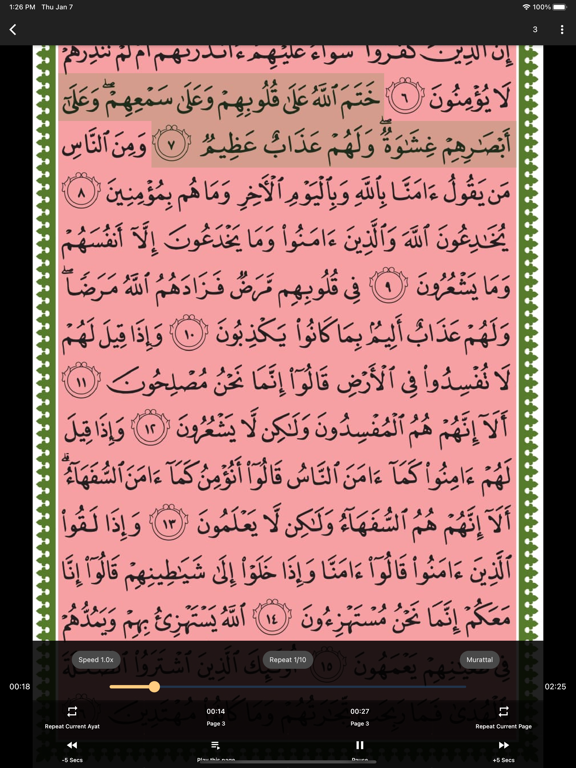 1:26 PM Thu Jan 7
100%
3
إِنَّ الَّذِينَ كَفَرُوا۟ سَوَآءٌ عَلَيْهِمْ ءَأَنذَرْتَهُمْ أَمْ لَمْ تُنذِرْهُمْ
لَا يُؤْمِنُونَ ٦ خَتَمَ ٱللَّهُ عَلَىٰ قُلُوبِهِمْ وَعَلَىٰ سَمْعِهِمْ ۖ وَعَلَىٰٓ
أَبْصَٰرِهِمْ غِشَٰوَةٌ ۖ وَلَهُمْ عَذَابٌ عَظِيمٌ ٧ وَمِنَ ٱلنَّاسِ
مَن يَقُولُ ءَامَنَّا بِٱللَّهِ وَبِٱلْيَوْمِ ٱلْـَٔاخِرِ وَمَا هُم بِمُؤْمِنِينَ ٨
يُخَٰدِعُونَ ٱللَّهَ وَٱلَّذِينَ ءَامَنُوا۟ وَمَا يَخْدَعُونَ إِلَّآ أَنفُسَهُمْ
وَمَا يَشْعُرُونَ ٩ فِى قُلُوبِهِم مَّرَضٌ فَزَادَهُمُ ٱللَّهُ مَرَضًا ۖ
وَلَهُمْ عَذَابٌ أَلِيمٌۢ بِمَا كَانُوا۟ يَكْذِبُونَ ١٠ وَإِذَا قِيلَ لَهُمْ
لَا تُفْسِدُوا۟ فِى ٱلْأَرْضِ قَالُوٓا۟ إِنَّمَا نَحْنُ مُصْلِحُونَ ١١
أَلَآ إِنَّهُمْ هُمُ ٱلْمُفْسِدُونَ وَلَٰكِن لَّا يَشْعُرُونَ ١٢ وَإِذَا قِيلَ
لَهُمْ ءَامِنُوا۟ كَمَآ ءَامَنَ ٱلنَّاسُ قَالُوٓا۟ أَنُؤْمِنُ كَمَآ ءَامَنَ ٱلسُّفَهَآءُ ۗ
أَلَآ إِنَّهُمْ هُمُ ٱلسُّفَهَآءُ وَلَٰكِن لَّا يَعْلَمُونَ ١٣ وَإِذَا لَقُوا۟
ٱلَّذِينَ ءَامَنُوا۟ قَالُوٓا۟ ءَامَنَّا وَإِذَا خَلَوْا۟ إِلَىٰ شَيَٰطِينِهِمْ قَالُوٓا۟ إِنَّا
مَعَكُمْ إِنَّمَا نَحْنُ مُسْتَهْزِءُونَ ١٤ ٱللَّهُ يَسْتَهْزِئُ بِهِمْ وَيَمُدُّهُمْ
Speed 1.0x Repeat 1/10 Murattal
يَعْمَهُونَ ١٥ أُو۟لَٰٓئِكَ ٱلَّذِينَ ٱشْتَرَوُا۟
00:18 02:25
00:14 00:27
Page 3 Page 3
Repeat Current Ayat Repeat Current Page
-5 Secs Play this page Pause +5 Secs